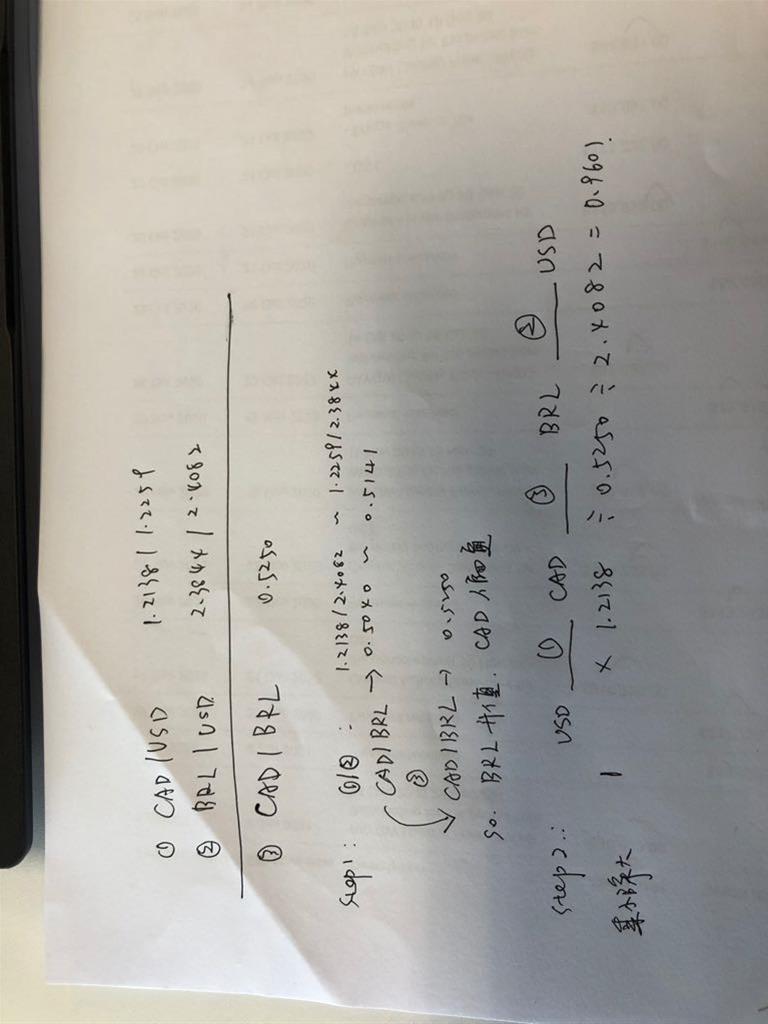 ① CAD/USD 1.2138 / 1.2259
② BRL/USD 2.3844 / 2.4082
③ CAD/BRL 0.5250
Step1: ①/②: 1.2138/2.4082 ~ 1.2259/2.3844
CAD/BRL → 0.5040 ~ 0.5141
③
CAD/BRL → 0.5250
So. BRL 升值. CAD 贬值
Step2: USD ① CAD ③ BRL ② USD
乘小除大 1 × 1.2138 ÷ 0.5250 ÷ 2.4082 = 0.9601.